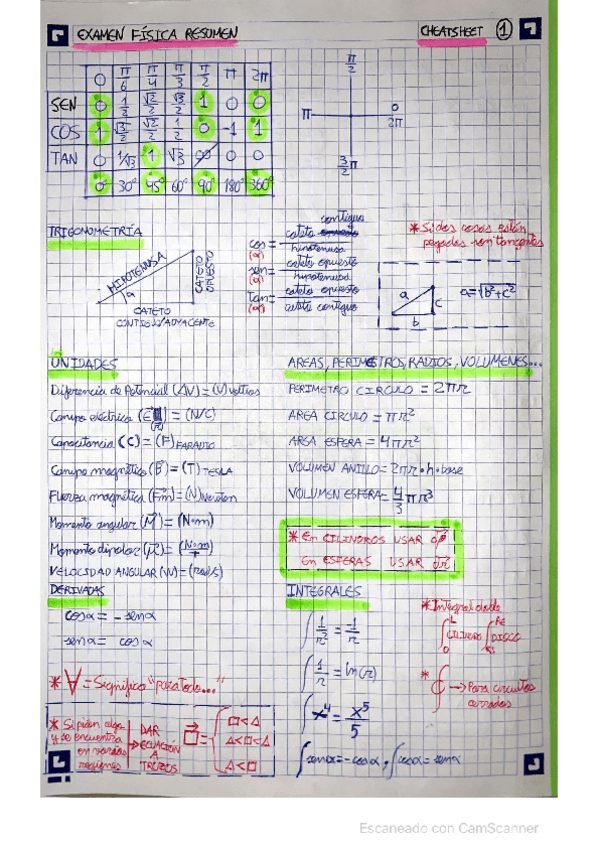 EXAMEN FÍSICA RESUMEN
CHEATSHEET 1
0 π/6 π/4 π/3 π/2 π 2π
SEN 0 1/2 √2/2 √3/2 1 0 0
COS 1 √3/2 √2/2 1/2 0 -1 1
TAN 0 1/√3 1 √3 ∞ 0 0
0° 30° 45° 60° 90° 180° 360°
π/2
π
0
2π
3/2 π
TRIGONOMETRÍA
HIPOTENUSA
CATETO OPUESTO
a
CATETO
CONTIGUO/ADYACENTE
cos (α) = cateto contiguo / hipotenusa
sen (α) = cateto opuesto / hipotenusa
tan (α) = cateto opuesto / cateto contiguo
* Si dos cosas están
pegadas son tangentes
a
c
b
a=√b²+c²
UNIDADES
Diferencia de Potencial (ΔV) = (V) voltios
Campo eléctrico (E) = (N/C)
Capacitancia (C) = (F) FARADIO
Campo magnético (B) = (T) TESLA
Fuerza magnética (Fm) = (N) Newton
Momento angular (M) = (N·m)
Momento dipolar (μ) = (N·m/T)
VELOCIDAD ANGULAR (W) = (rad/s)
AREAS, PERIMETROS, RADIOS, VOLUMENES...
PERIMETRO CIRCULO = 2πr
AREA CIRCULO = πr²
AREA ESFERA = 4πr²
VOLUMEN ANILLO = 2πr·h·base
VOLUMEN ESFERA = 4/3 πr³
* En CILINDROS USAR
En ESFERAS USAR
DERIVADAS
cosα = -senα
senα = cosα
* ∀ = Significa "para todo..."
* Si piden algo
y se encuentra
en varias
regiones
DAR
→ ECUACIÓN
A
TROZOS
□ = { □<Δ
Δ<□<Δ
Δ<□
INTEGRALES
∫ 1/r² = -1/r
∫ 1/r = ln(r)
∫ x⁴ = x⁵/5
∫senα=-cosα, ∫cosα=senα
* Integral doble
CILINDRO
DISCO
* ∮ → Para circuitos
cerrados
Escaneado con CamScanner